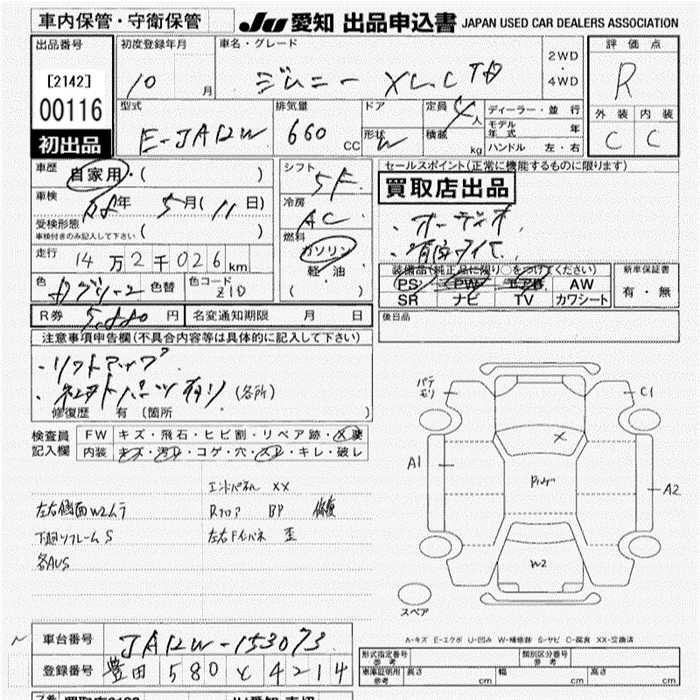 車内保管・守衛保管
JU 愛知 出品申込書 JAPAN USED CAR DEALERS ASSOCIATION
出品番号
[2142]
00116
初出品
初度登録年月
10 月
車名・グレード
ジムニー XLC TB
2WD
・
4WD
評価点
R
外装 内装
C C
型式
E-JA12W
排気量
660 CC
ドア
形状 W
定員 4人
積載 kg
ディーラー・並行
モデル年式 年
ハンドル 左・右
車歴
自家用・( )
車検
5月(11日)
受検形態
車検付きのみ記入して下さい ( )
走行
14万2千026km
色 色替 色コード
Z1D
R券 5,880円 名変通知期限 月 日
シフト
5F
冷房
AC
燃料
ガソリン
軽油
( )
セールスポイント(正常に機能するものに限ります)
買取店出品
・オーディオ
装備品(純正品に限り○をつけてください)
PS PW エアB AW
SR ナビ TV カワシート
新車保証書
有・無
後日品
注意事項申告欄(不具合内容等は具体的に記入して下さい)
・リフトアップ
(各所)
修復歴 有 (箇所 )
検査員
記入欄
FW キズ・飛石・ヒビ割・リペア跡・X要
内装 キズ・汚レ・コゲ・穴・スレ・キレ・破レ
エンドパネル XX
左右側面W2ムラ Rフロア BP 修復
下廻リフレームS 左右Fインパネ 歪
各AUS
パテ
モリ
C1
A1
A2
X
W2
スペア
A-キズ E-エクボ U-凹み W-補修跡 S-サビ C-腐食 XX-交換済
車台番号 JA12W-153073
登録番号 豊田 580 と 4214
形式指定番号
参考
類別区分番号
参考
車庫証明用
参考
長さ cm 幅 cm 高さ cm